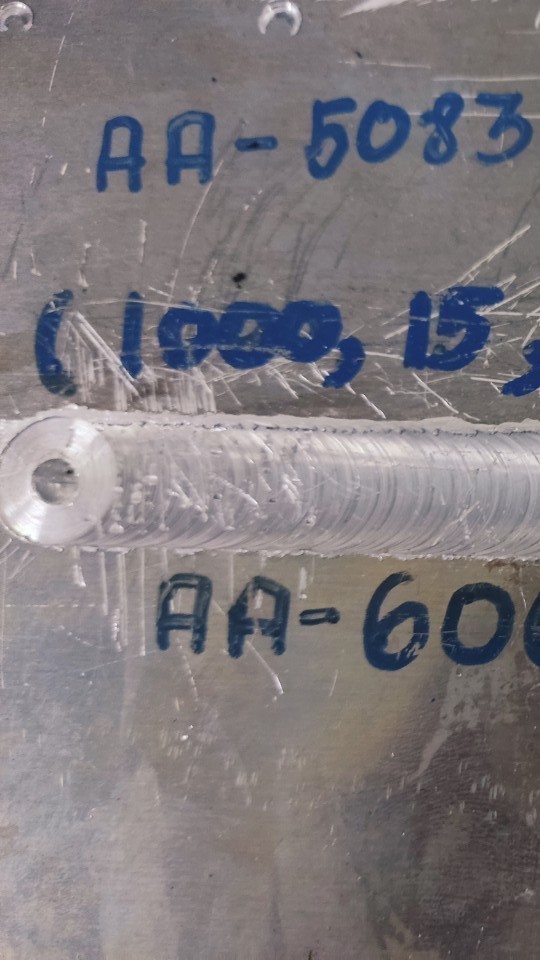 AA-5083
(1000, 15,
AA-606